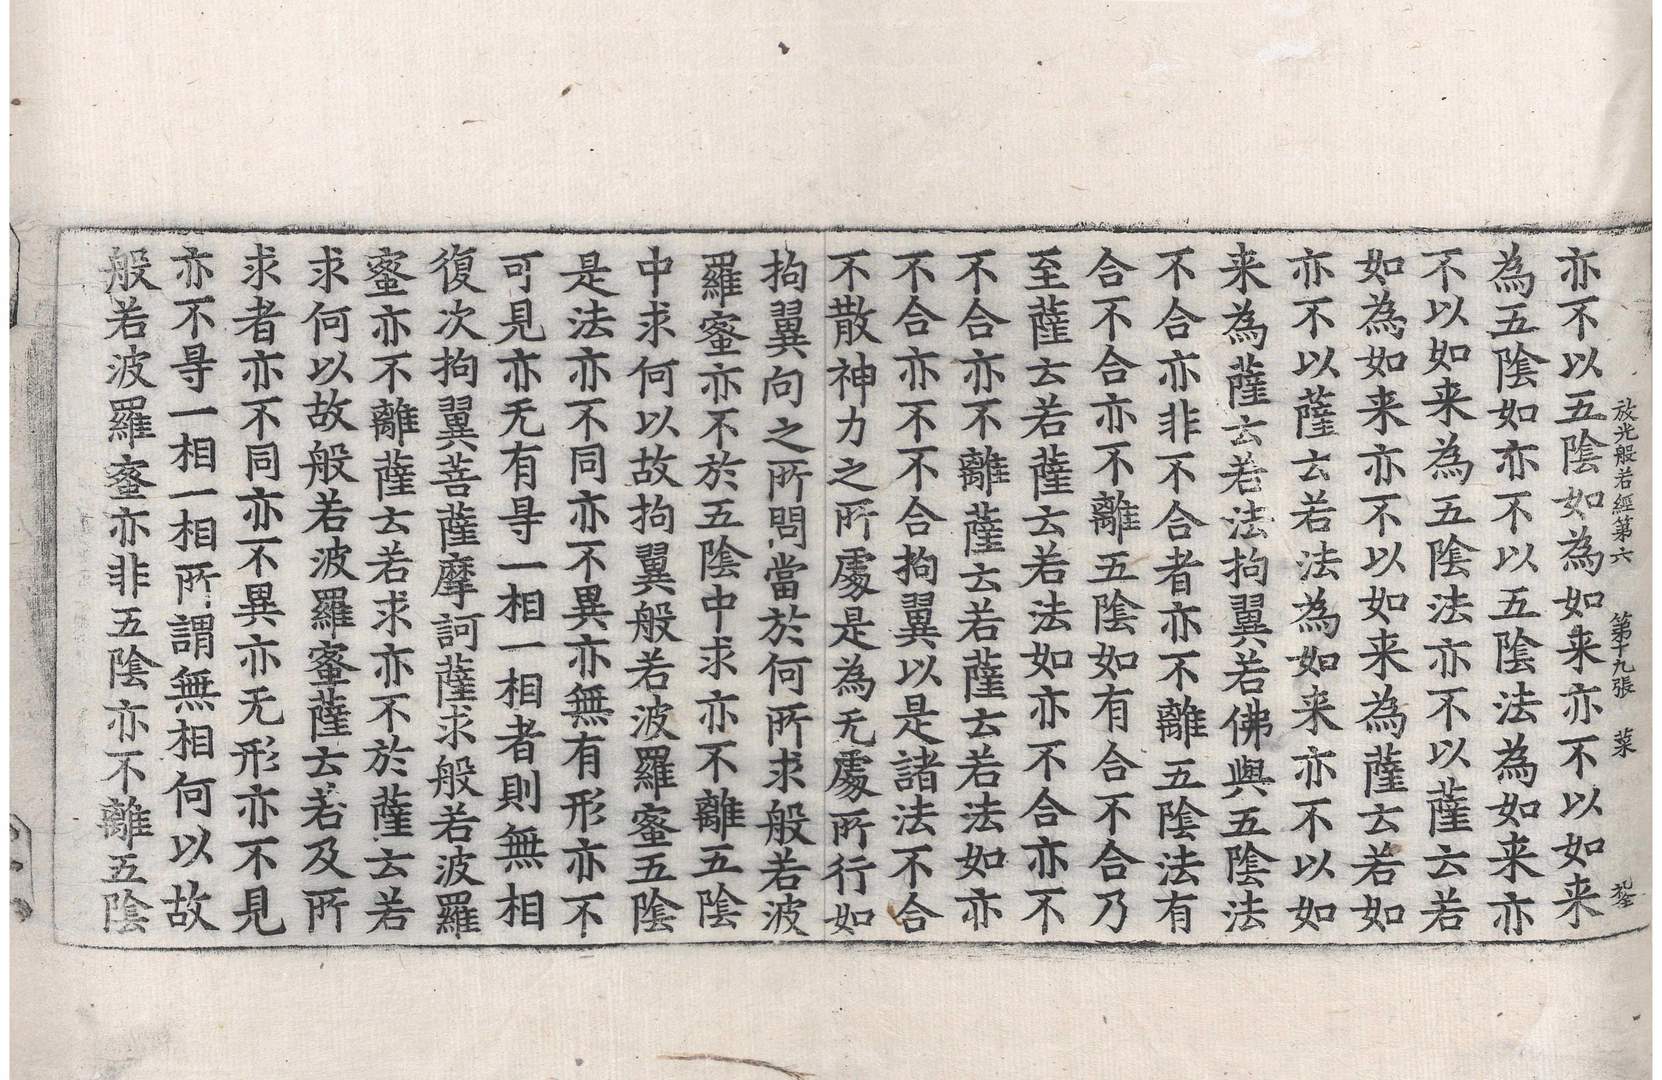 放光般若經第六　第十九張　菜
亦不以五陰如為如来亦不以如来
為五陰如亦不以五陰法為如来亦
不以如来為五陰法亦不以薩云若
如為如来亦不以如来為薩云若如
亦不以薩云若法為如来亦不以如
来為薩云若法拘翼若佛與五陰法
不合亦非不合者亦不離五陰法有
合不合亦不離五陰如有合不合乃
至薩云若薩云若法如亦不合亦不
不合亦不離薩云若薩云若法如亦
不合亦不不合拘翼以是諸法不合
不散神力之所處是為无處所行如
拘翼向之所問當於何所求般若波
羅蜜亦不於五陰中求亦不離五陰
中求何以故拘翼般若波羅蜜五陰
是法亦不同亦不異亦無有形亦不
可見亦无有㝵一相一相者則無相
復次拘翼菩薩摩訶薩求般若波羅
蜜亦不離薩云若求亦不於薩云若
求何以故般若波羅蜜薩云若及所
求者亦不同亦不異亦无形亦不見
亦不㝵一相一相所謂無相何以故
般若波羅蜜亦非五陰亦不離五陰